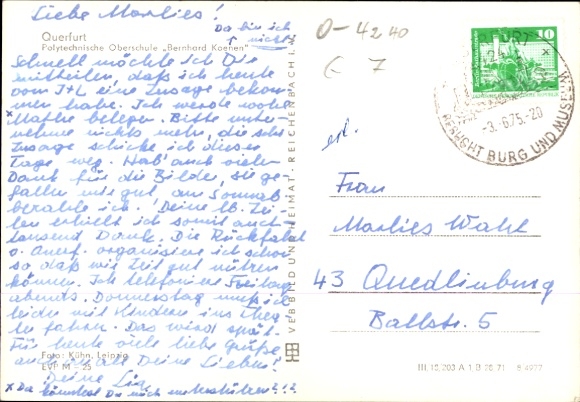 Liebe Marlies!
Da bin ich
nicht!
Querfurt
Polytechnische Oberschule „Bernhard Koenen"
Schnell möchte ich Dir
mitteilen, daß ich heute
vom J+L eine Zusage bekom
men habe. Ich werde wohl
Mathe belegen. Bitte unter-
nehme nichts mehr, die
Zusage schicke ich dieser
Tage weg. Hab' auch vielen
Dank für die Bilder, sie ge-
fallen mir gut, am Sonnab
ich. Deine lb. Zei-
len erhielt ich somit auch
tausend Dank. Die Rückfahrt
organisiere ich schon
so daß wir Zeit gut nützen
können. Ich telefoniere Freitag
abends. Donnerstag muß ich
leider mit Kindern ins
fahren. Das wird spät.
Für heute viele liebe Grüße,
auch an all Deine Lieben!
Foto: Kühn, Leipzig
EVP M -,25
Deine
x Da könntest Du mich
VEB BILD UND HEIMAT · REICHENBACH i. V.
0-4240
7
10
QUERFURT
-3.-6.75.-20
BESUCHT BURG UND MUSEUM
Frau
Marlies Wahl
43 Quedlinburg
Ballstr. 5
III, 15, 203 A 1, B 26/71 8 4977